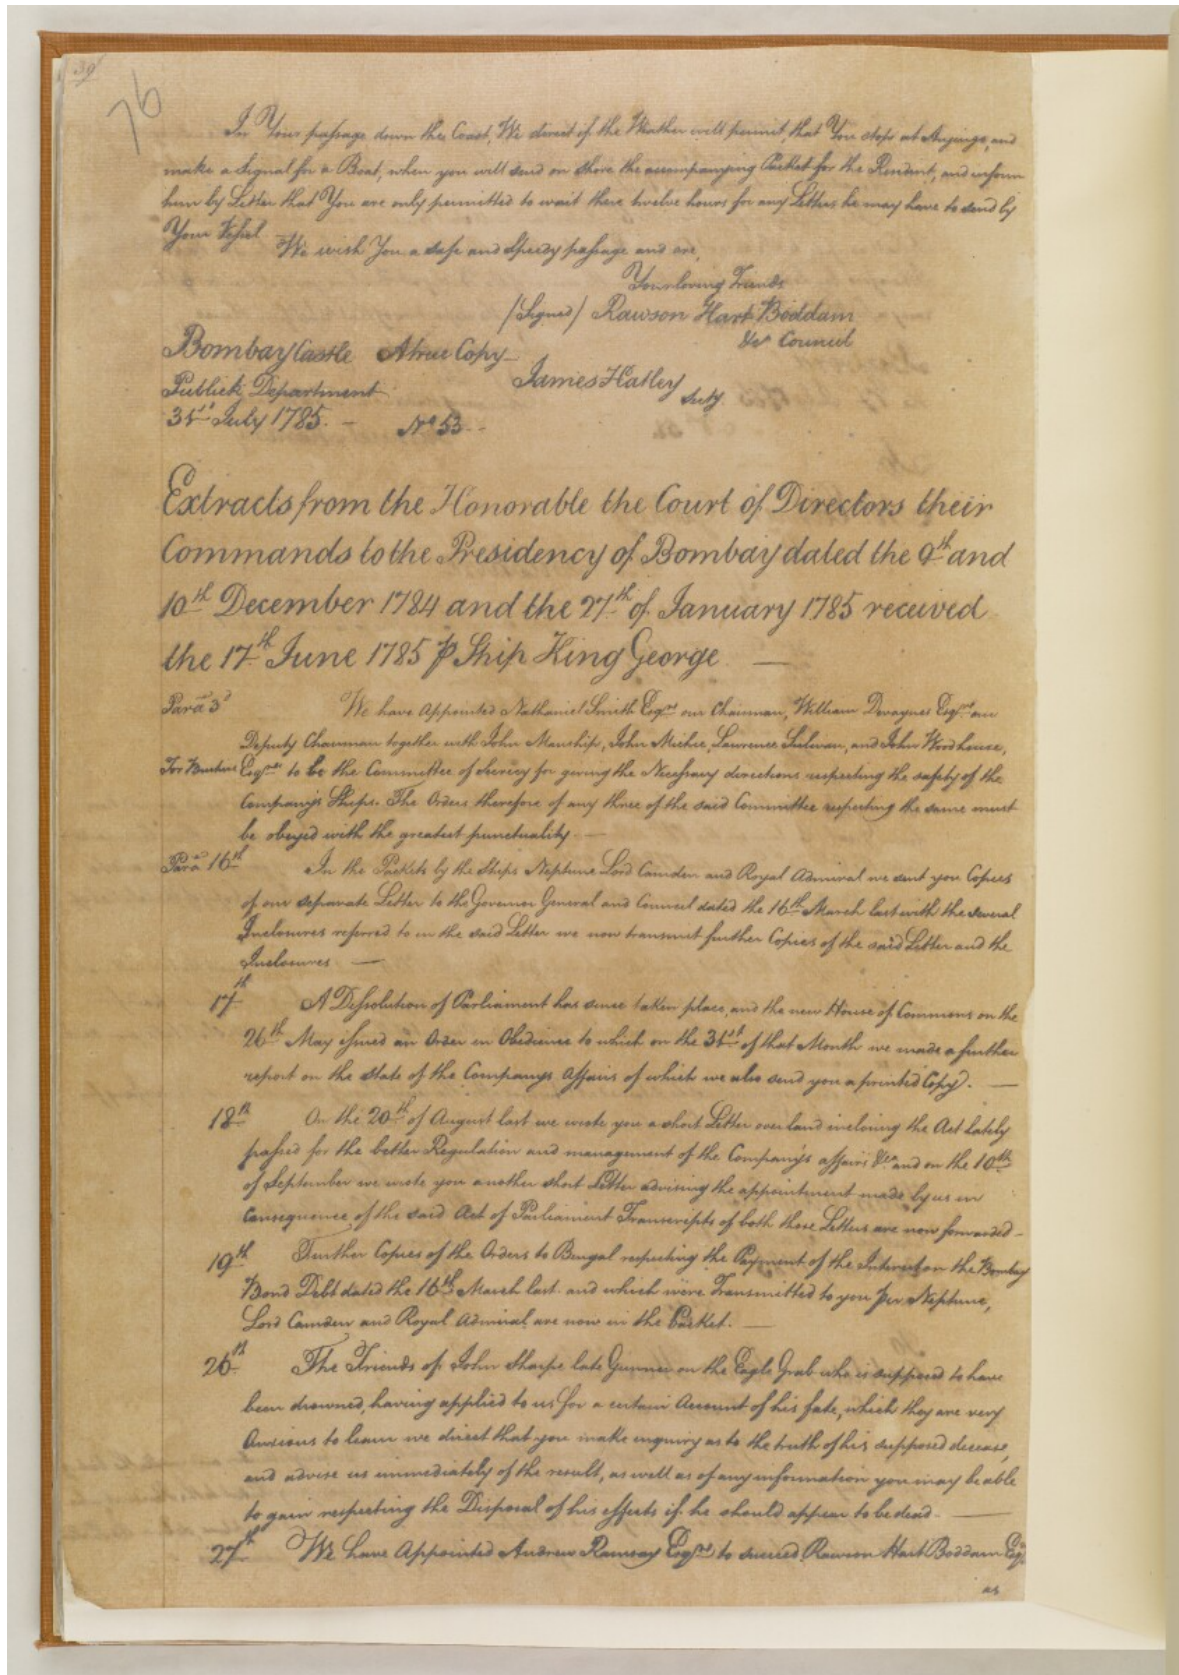 39
76
In Your passage down the Coast, We direct if the Weather will permit, that You stop at Anjengo, and
make a Signal for a Boat, when you will send on shore the accompanying Packet for the Resident, and inform
him by Letter that You are only permitted to wait there twelve hours for any Letters he may have to send by
Your Vessel.
We wish You a safe and Speedy passage and are,
Your loving Friends
/Signed/ Rawson Hart Boddam
&ca Council
Bombay Castle A true Copy
James Hatley
Publick Department
Secty.
31st July 1785. - No 53 -
Extracts from the Honorable the Court of Directors their
Commands to the Presidency of Bombay dated the 9th and
10th December 1784 and the 27th of January 1785 received
the 17th June 1785 p Ship King George —
Para 3d We have Appointed Nathaniel Smith Esqre our Chairman, William Devaynes Esqre our
Deputy Chairman together with John Manship, John Michie, Lawrence Sulivan, and John Woodhouse,
Esqrs to be the Committee of Secrecy for giving the Necessary directions respecting the safety of the
Company's Ships. The Orders therefore of any three of the said Committee respecting the same must
be obeyed with the greatest punctuality —
Para 16th In the Packets by the Ships Neptune Lord Camden and Royal Admiral we sent you Copies
of our separate Letter to the Governor General and Council dated the 16th March last with the several
Inclosures referred to in the said Letter we now transmit further Copies of the said Letter and the
Inclosures —
17th A Dissolution of Parliament has since taken place, and the new House of Commons on the
26th May issued an Order in Obedience to which on the 31st of that Month we made a further
report on the State of the Companys Affairs of which we also send you a printed Copy. —
18th On the 20th of August last we wrote you a short Letter over land inclosing the Act Lately
passed for the better Regulation and management of the Company's affairs &ca and on the 10th
of September we wrote you another short Letter advising the appointment made by us in
Consequence of the said Act of Parliament Transcripts of both those Letters are now forwarded —
19th Further Copies of the Orders to Bengal respecting the Payment of the Interest on the Bombay
Bond Debt dated the 16th March last and which were Transmitted to you per Neptune,
Lord Camden and Royal Admiral are now in the Packet. —
26th The Friends of John Sharpe late Gunner on the Eagle Grab who is supposed to have
been drowned, having applied to us for a certain Account of his fate, which they are very
Anxious to learn we direct that you make enquiry as to the truth of his supposed decease,
and advise us immediately of the result, as well as of any information you may be able
to gain respecting the Disposal of his effects if he should appear to be dead. —
27th We have Appointed Andrew Ramsay Esqre to succeed Rawson Hart Boddam Esqr
as